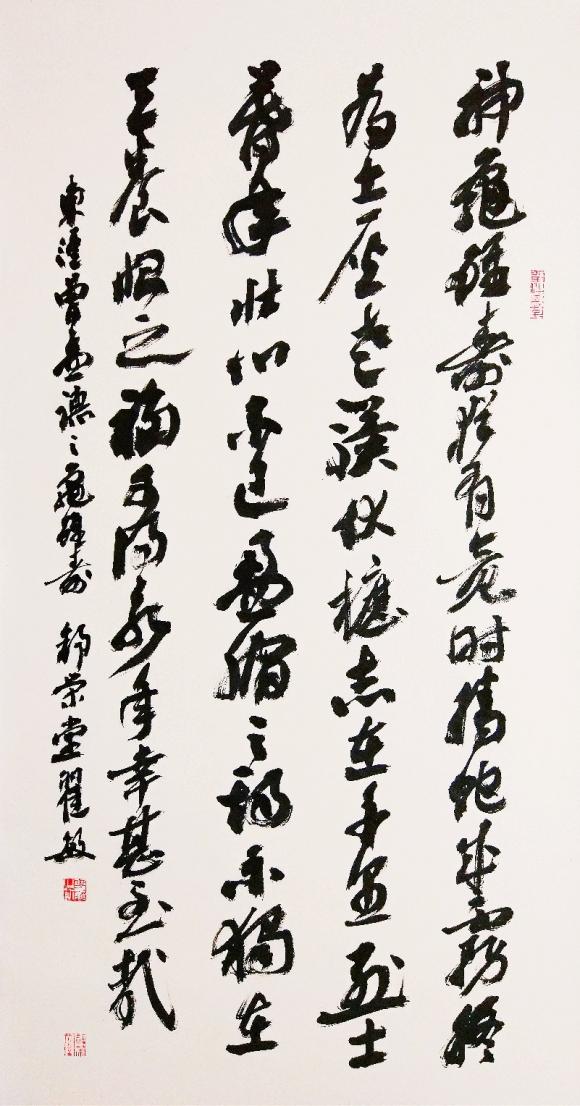 神龜雖壽猶有竟时騰蛇乘霧終
為土灰老驥伏櫪志在千里烈士
暮年壯心不已盈縮之期不獨在
天養怡之福可得永年幸甚至哉
東漢曹孟德之龜雖壽 静荣堂瞿敏